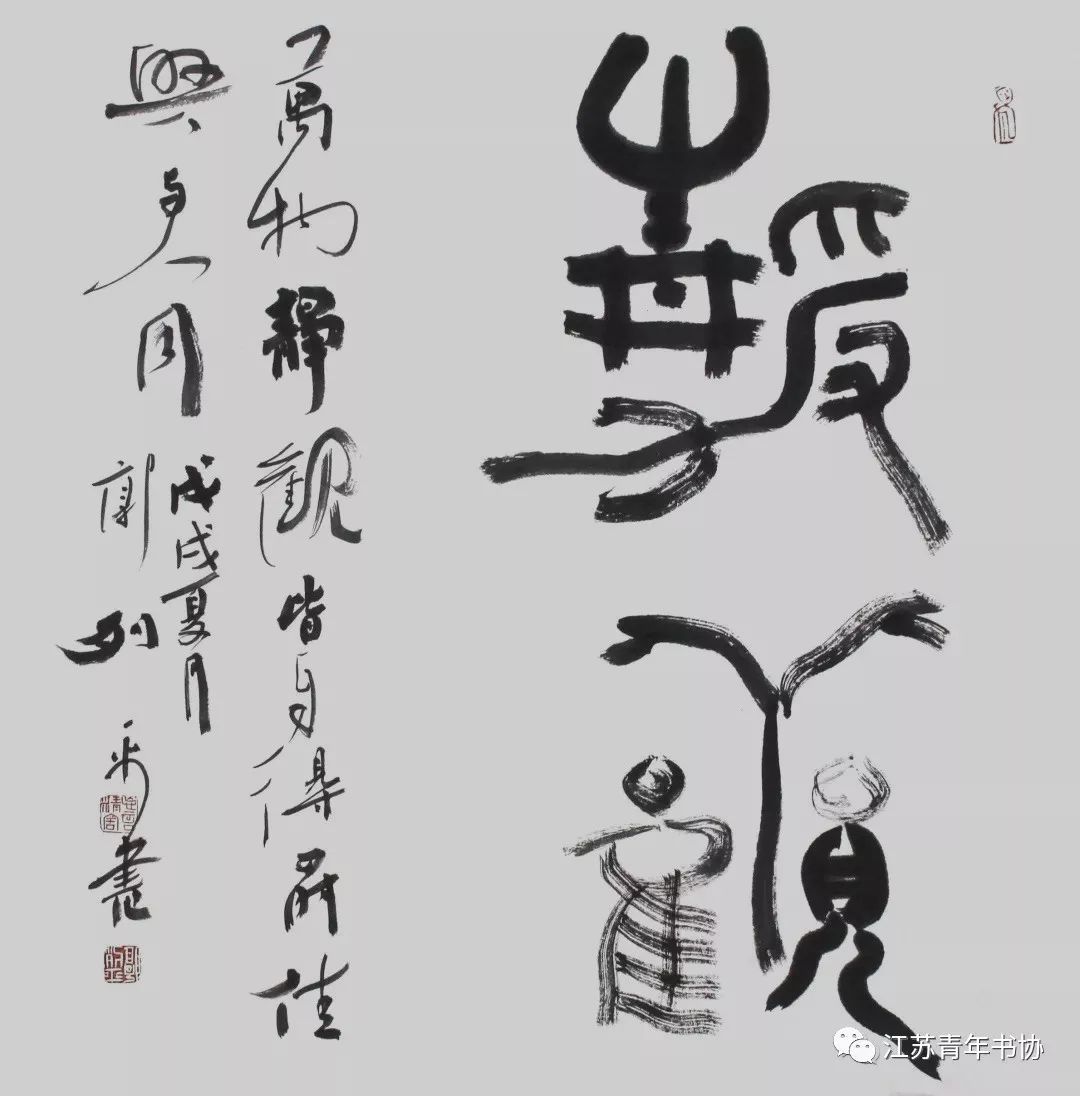 靜觀
萬物靜觀皆自得四時佳
興與人同
戊戌夏月
郭列平書
江苏青年书协